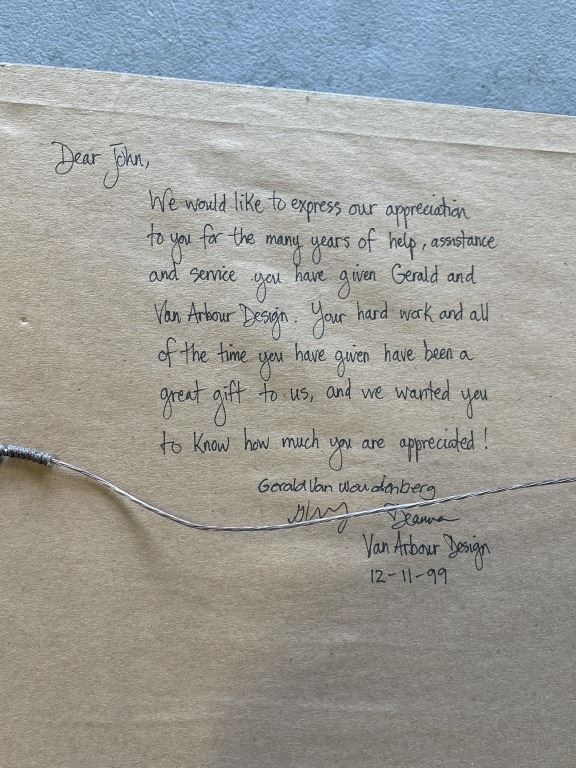 Dear John,
We would like to express our appreciation
to you for the many years of help, assistance
and service you have given Gerald and
Van Arbour Design. Your hard work and all
of the time you have given have been a
great gift to us, and we wanted you
to know how much you are appreciated!
Gerald Van Woudenberg
Deanna
Van Arbour Design
12-11-99